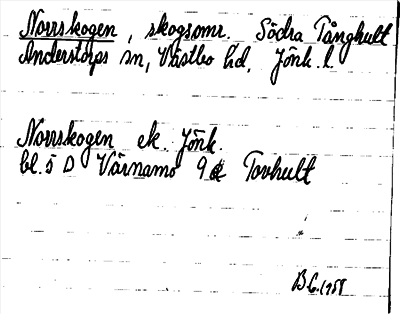 Norrskogen, skogsomr. Södra Tånghult
Anderstorps sn, Västbo hd, Jönk. l.
Norrskogen ek. Jönk.
bl. 5 D Värnamo 9 Tovhult
B G. 1958